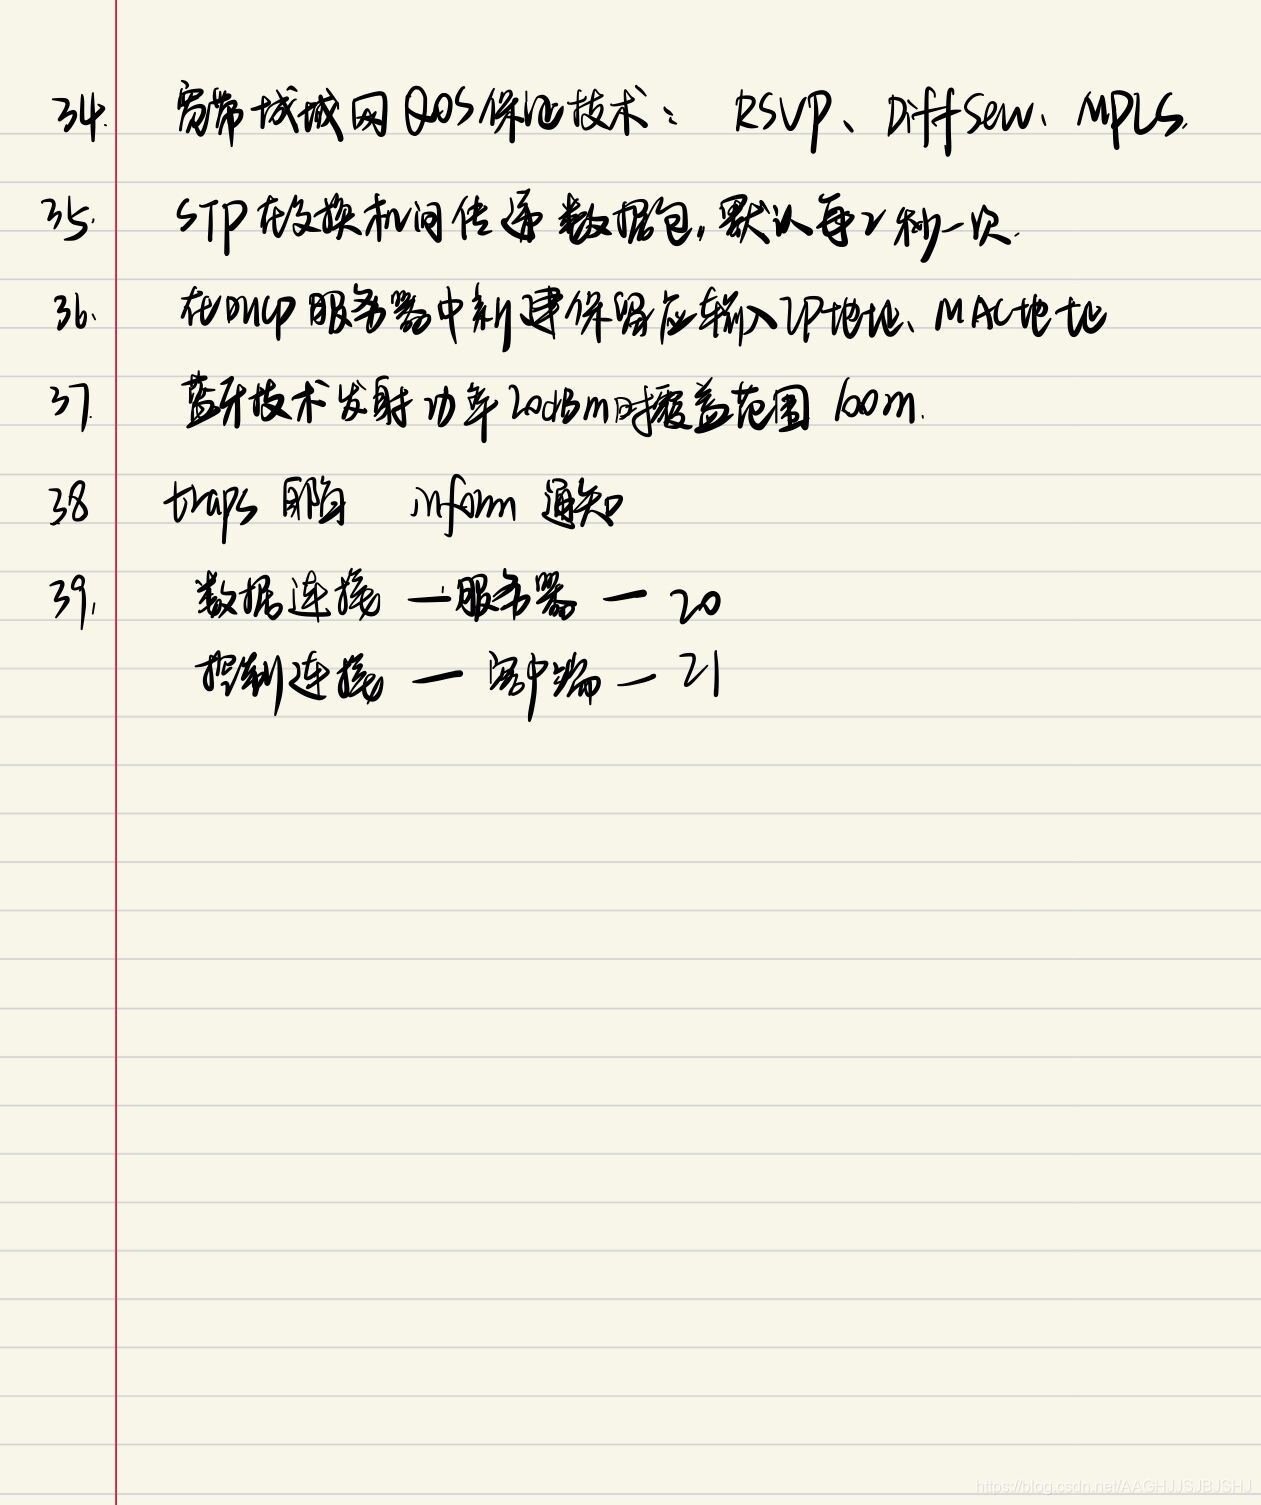 34. 宽带城域网QOS保证技术：RSVP、DiffSew、MPLS.
35. STP在交换机间传递数据包，默认每2秒一次.
36. 在DHCP服务器中新建保留应输入IP地址、MAC地址
37. 蓝牙技术发射功率20dBm时覆盖范围100m.
38 traps 陷阱 inform 通知
39. 数据连接 — 服务器 — 20
控制连接 — 客户端 — 21
https://blog.csdn.net/AAGHJJSJBJSHJ